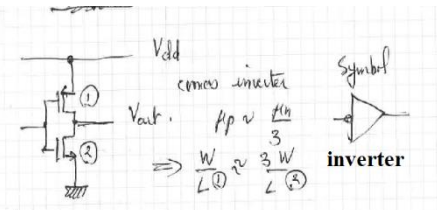 Vdd
cmos inverter
Symbol
①
Vout.
μp ~ μn/3
②
⇒ W/L ① ≈ 3 W/L ②
inverter